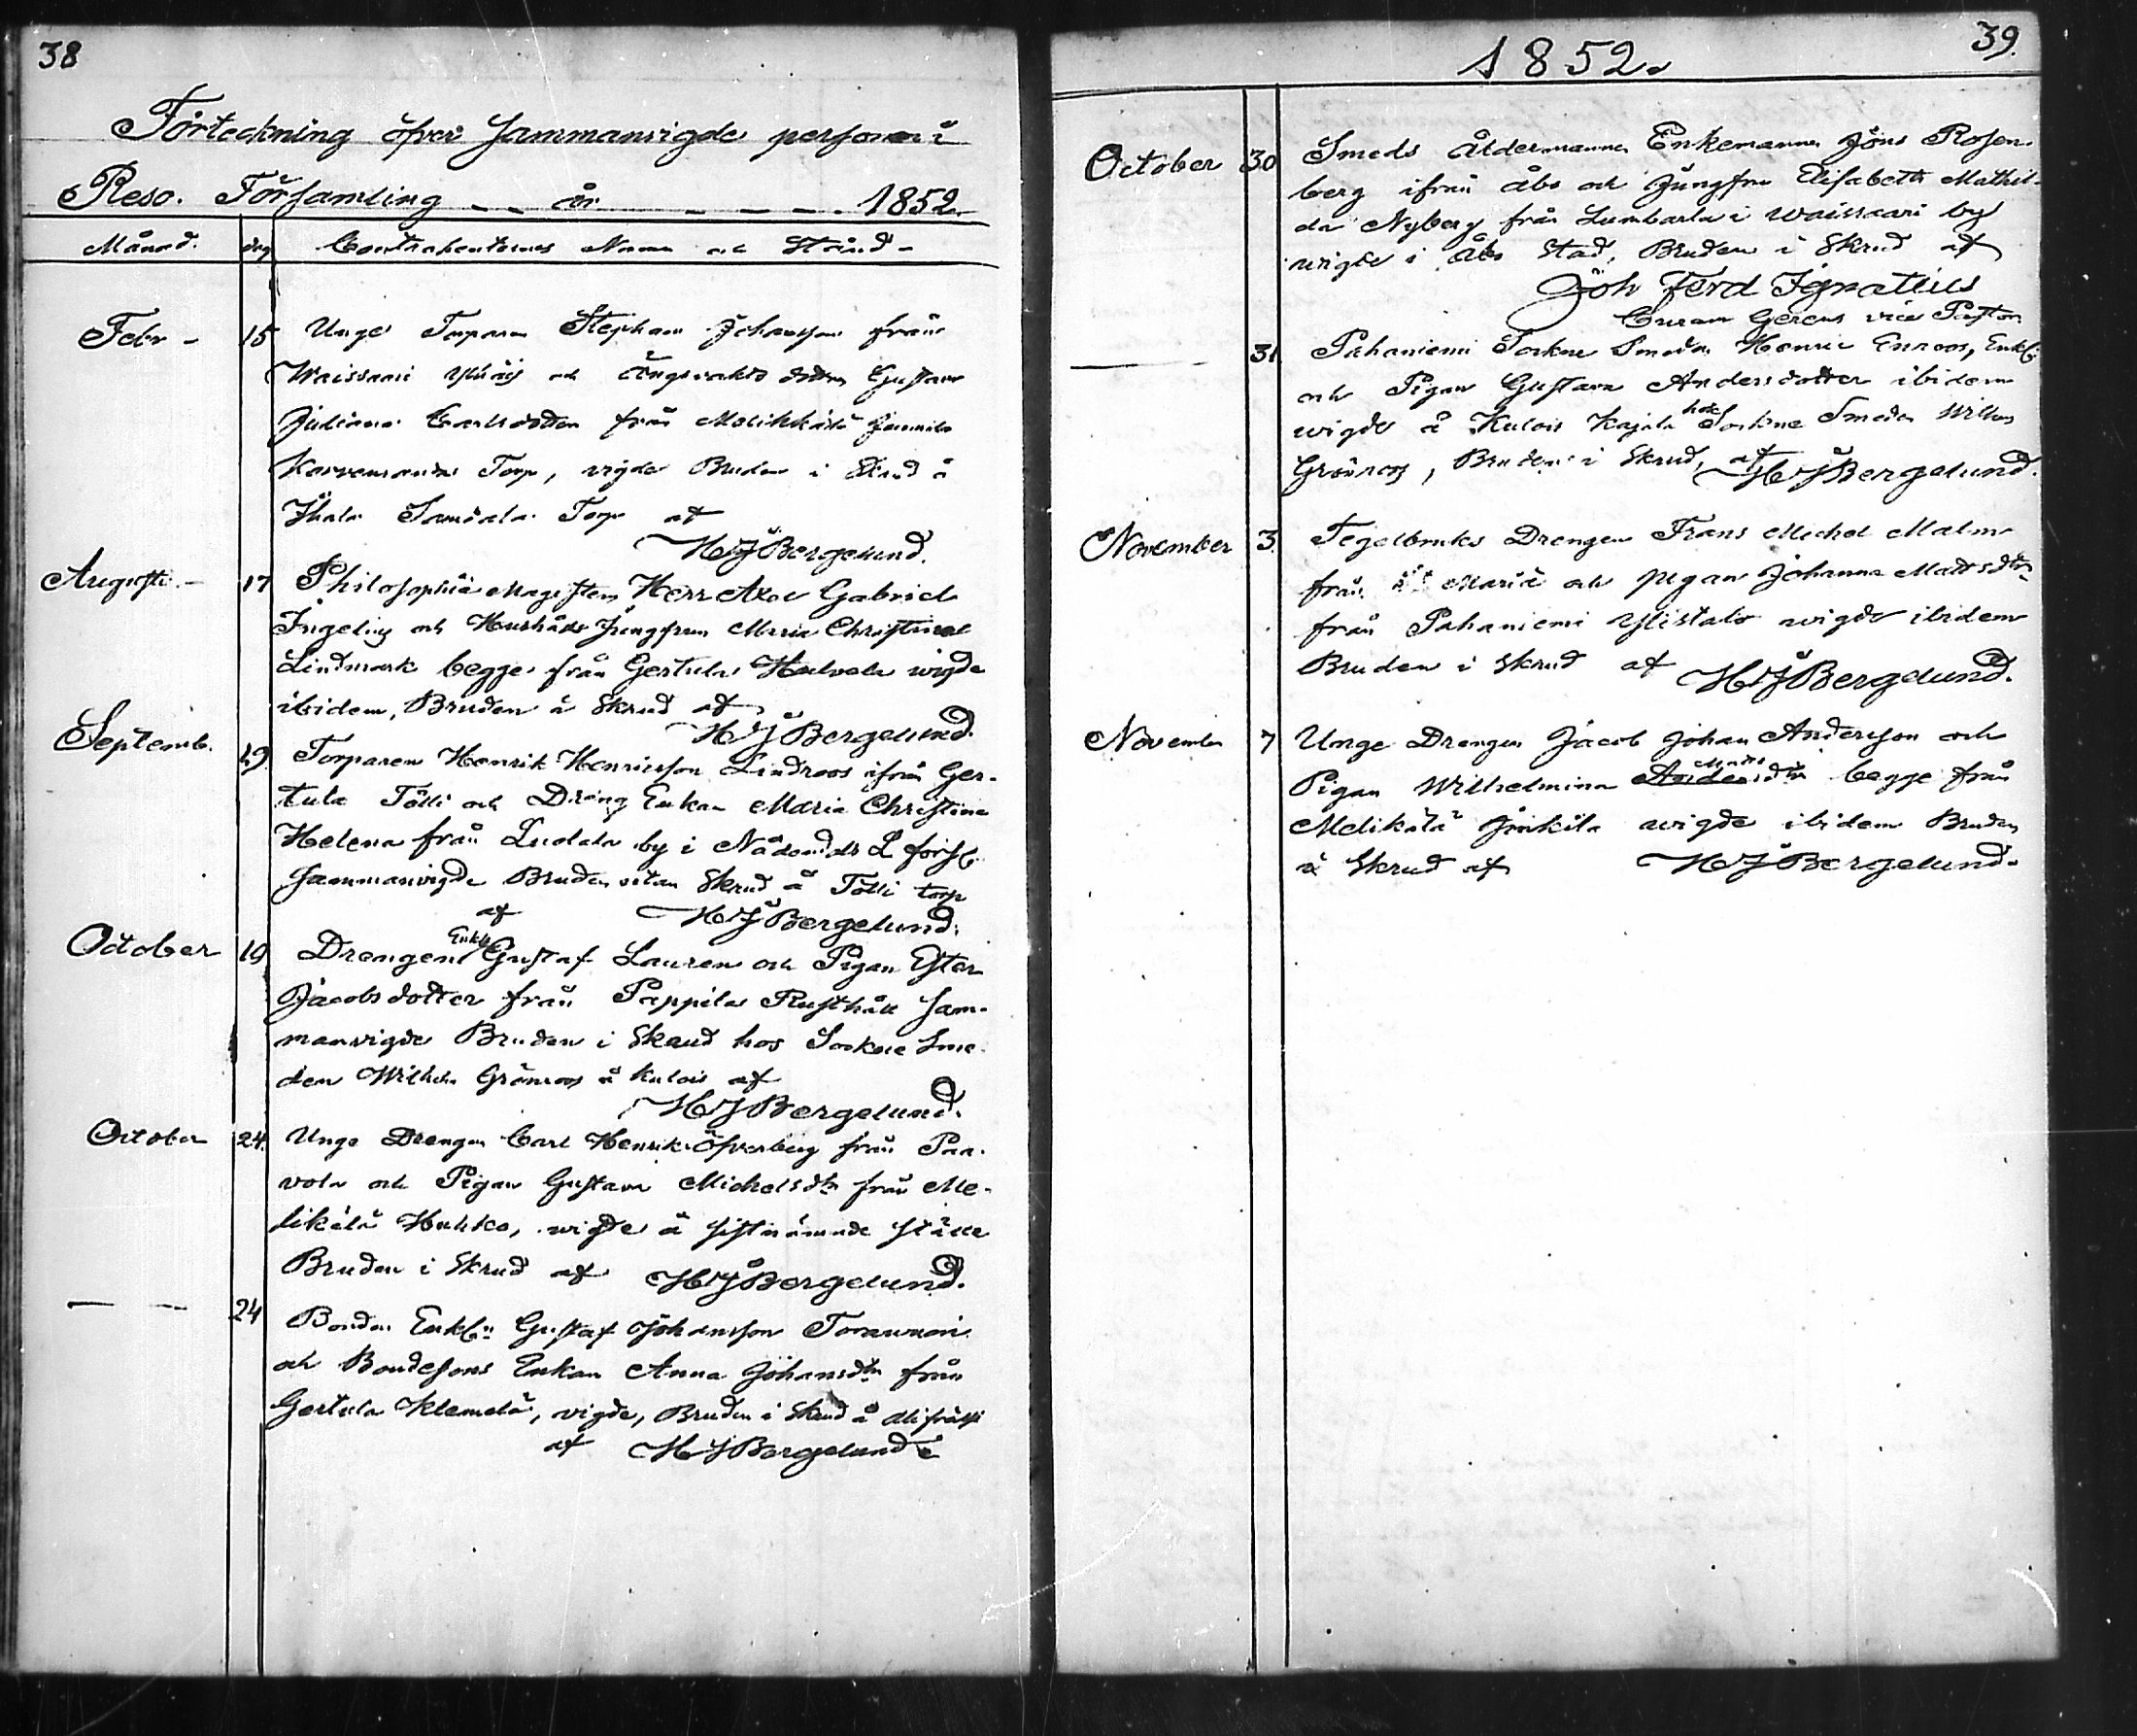 38
Förteckning öfver Sammanvigde personer i
Reso. Församling — år — — — 1852.
Månad. dag Contrahenternes Namn och Stånd —
Febr — 15 Unge Torparen Stephan Johansson från
Waissaari och Ängsvakts dottren Gustava
Juliana Carlsdotter från Molikkälä
Torp, vigde Bruden i Skrud å
Torp af
H J Bergelund.
Augusti — 17 Philosophiæ Magistern Herr Axel Gabriel
Ingelius och Hushålls Jungfrun Maria Christina
Lindmark begge från Gertula wigde
ibidem, Bruden i Skrud af
H J Bergelund.
Septemb. 29 Torparen Henrik Henricsson Lindroos ifrån Ger-
tula Tölli och Dräng Enkan Maria Christina
Helena från Luolala by i Nådendals L förs:
Sammanvigde Bruden utan Skrud å Tölli torp
af H J Bergelund.
October 19 Drengen Enkl: Gustaf Lauren och Pigan Ester
Jacobsdotter från Pappila Rusthåll Sam-
manvigde Bruden i Skrud hos Sockne Sme-
den Wilhelm Grönroos å Kulois af
H J Bergelund.
October 24. Unge Drengen Carl Henrik Öfverberg från Paa-
vola och Pigan Gustava Michelsdtr från Me-
likälä Huhko, wigde å sistnämnde ställe
Bruden i Skrud af H J Bergelund.
— — 24 Bonden Enkl: Gustaf Johansson
och Bondesons Enkan Anna Johansdtr från
Gertula Klemelä, vigde, Bruden i Skrud å
af H J Bergelund
1852.
39.
October 30 Smeds Åldermannen Enkemannen Jöns Rosen-
berg ifrån Åbo och Jungfru Elisabeth Mathil-
da Nyberg från Lumbarla i Waissaari by
wigde i Åbo Stad, Bruden i Skrud af
Joh Ferd Ignatius
Curam Gerens vice Pastor.
— 31. Pahaniemi Sockne Smeden Henric Enroos, Enkl:
och Pigan Gustava Andersdotter ibidem
wigde å Kulois Kajala hos Sockne Smeden Wilhem
Grönroos, Bruden i Skrud, af
H J Bergelund.
November 3. Tegelbruks Drengen Frans Michel Malm
från St Mariæ och pigan Johanna Mattsdtr
från Pahaniemi Ylistalo wigde ibidem
Bruden i Skrud af H J Bergelund.
November 7 Unge Drengen Jacob Johan Andersson och
Pigan Wilhelmina Anders Matts dtr begge från
Melikälä Junkila wigde ibidem Bruden
i Skrud af H J Bergelund.